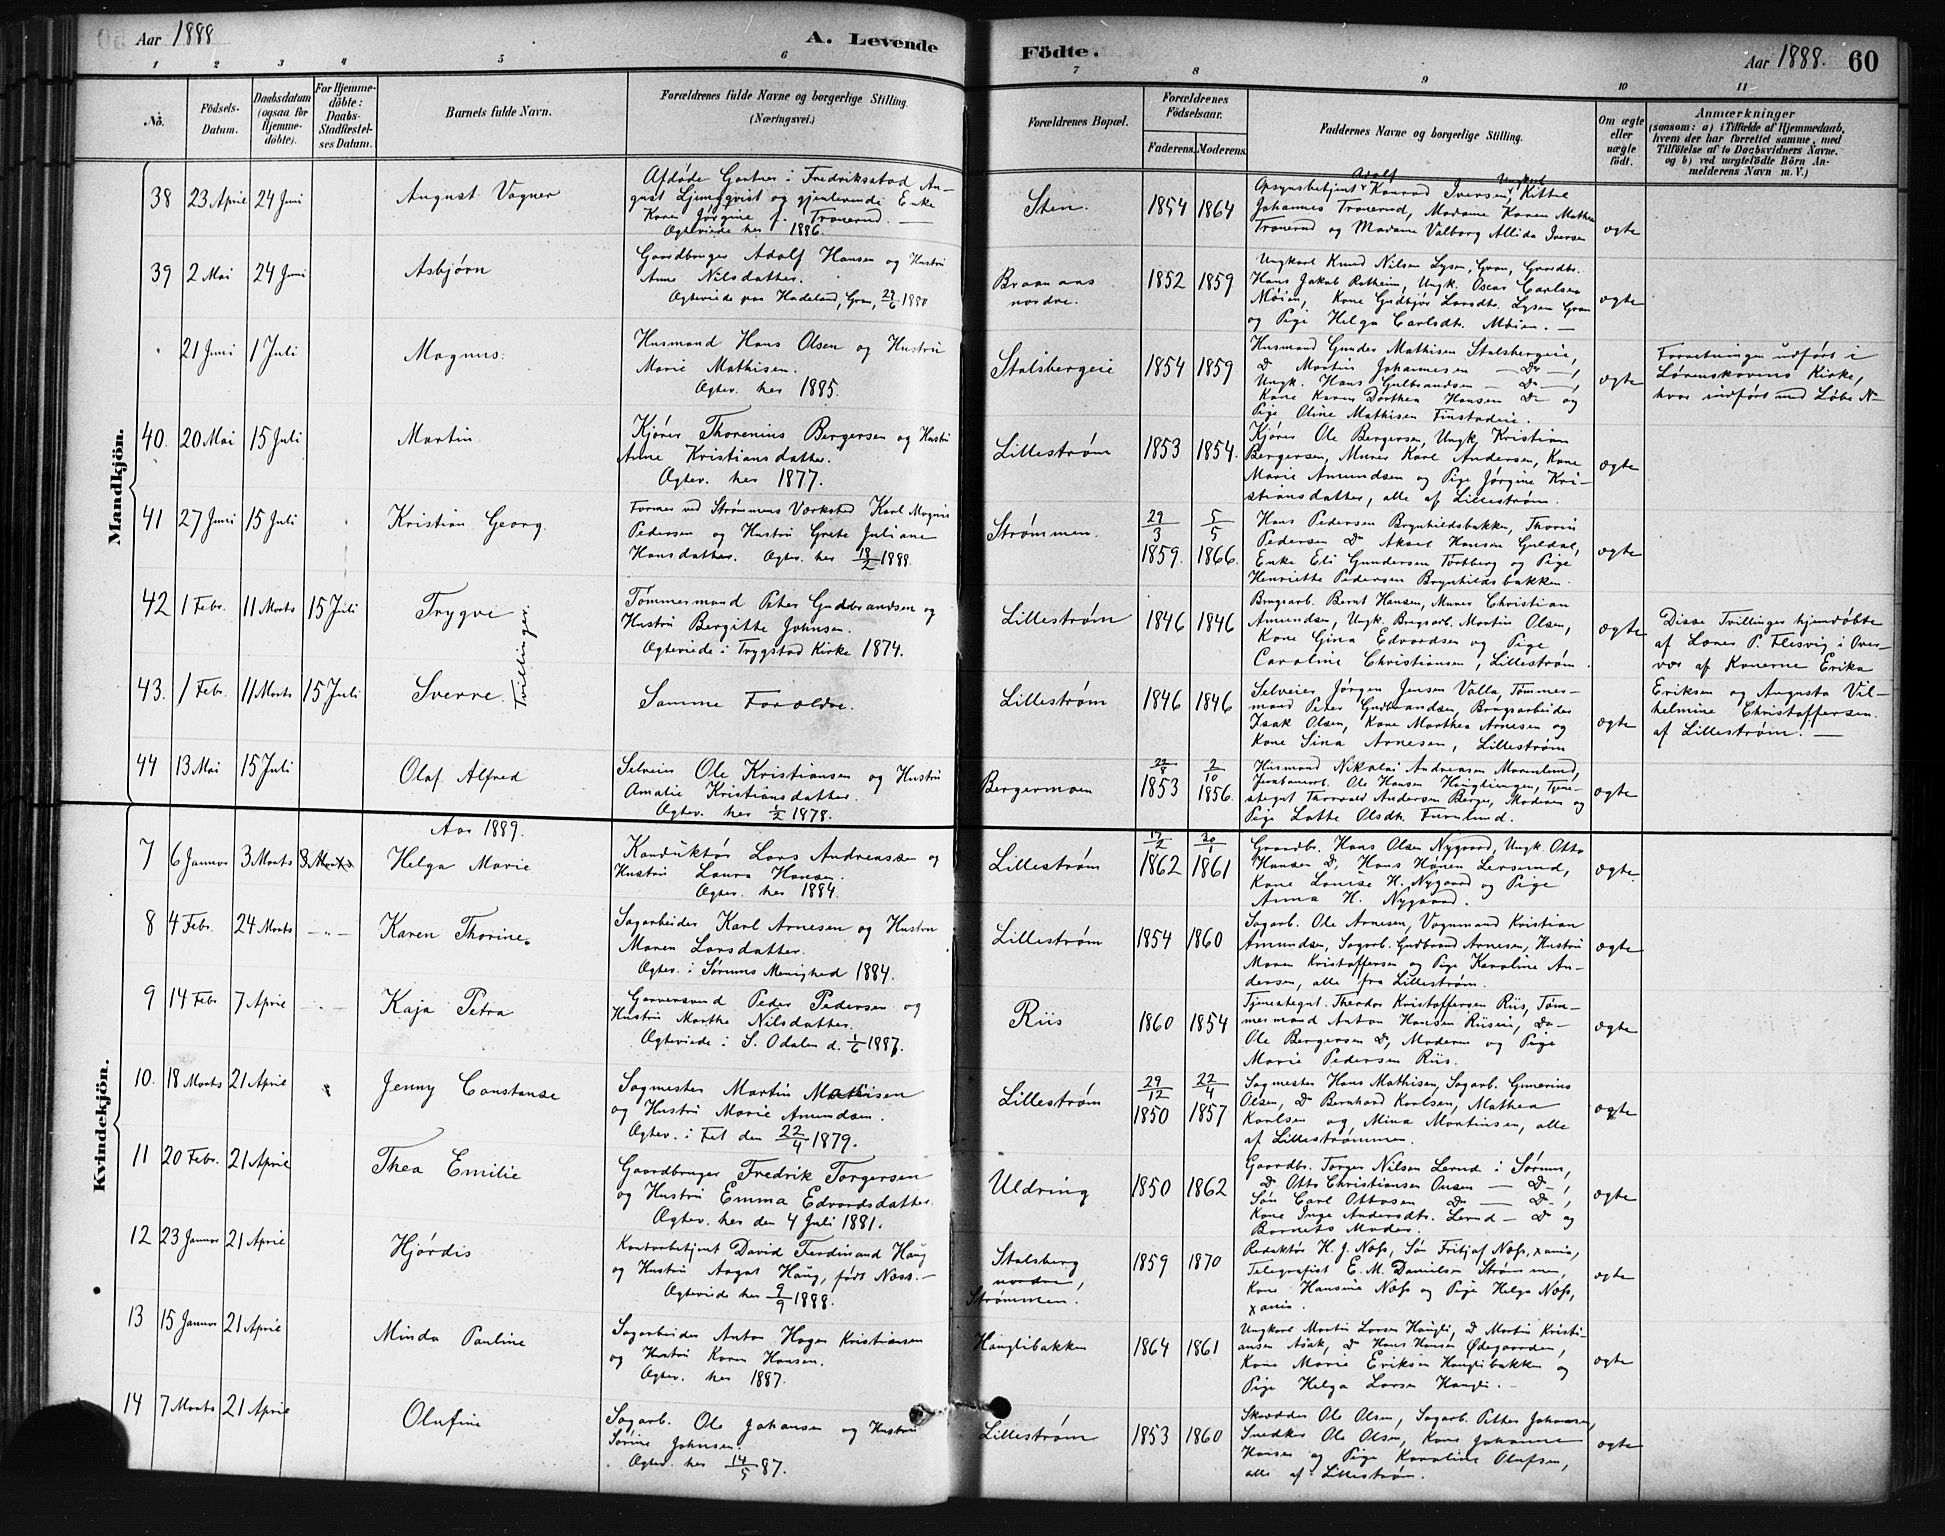 Aar 1888
A. Levende
Födte.
Aar 1888. 60
1 2 3 4 5 6 7 8 9 10 11
No.
Födsels-
Datum.
Daabsdatum
(ogsaa for
Hjemme-
döbte).
For Hjemme-
döbte:
Daabs-
Stadfæstel-
ses Datum.
Barnets fulde Navn.
Forældrenes fulde Navne og borgerlige Stilling.
(Næringsvei.)
Forældrenes Bopæl.
Forældrenes
Födselsaar.
Faderens. Moderens.
Faddernes Navne og borgerlige Stilling.
Om ægte
eller
uægte
födt.
Anmærkninger
(saasom: a) i Tilfælde af Hjemmedaab,
hvem der har forrettet samme, med
Tilföielse af to Daabsvidners Navne.
og b) ved uægtefödte Börn An-
melderens Navn m. V.)
Mandkjön.
38 23 April 24 Juni
August Vagner
Afdøde Gartner i Fredriksstad Au-
gust Ljungqvist og gjenlevende Enke
Karen Jørgine f. Tronerud. —
Ægteviede her 1886.
Sten.
1854 1864
Adolf Ungkarl
Opsynsbetjent Konrad Iversen, Kittel
Johannes Tronerud, Madame Karen Mathea
Tronerud og Madame Valborg Allida Iversen
ægte
39 2 Mai 24 Juni
Asbjørn
Gaardbruger Adolf Hansen og Hustru
Anne Nilsdatter.
Ægteviede paa Hadeland, Gran, 29/6 1880
Braanaas
nordre.
1852 1859
Ungkarl Knud Nilsen Lysen, Gran, Gaardbr.
Hans Jakob Rotheim, Ungk. Oscar Carlsen
Møien, Kone Gudbjør Larsdt. Lysen Gran
og Pige Helga Carlsdt. Møien. —
ægte
" 21 Juni 1 Juli
Magnus.
Husmand Hans Olsen og Hustru
Marie Mathisen.
Ægtev. her 1885.
Stalsbergeie
1854 1859
Husmand Gunder Mathisen Stalsbergeie,
Do Martin Johannesen — Do —,
Ungk. Hans Gulbrandsen — Do —,
Kone Karen Dorthea Hansen Do — og
Pige Oline Mathisen Finstadeie.
ægte
Forretningen udført i
Lørenskovens Kirke,
hvor indført med Løbe N—
40. 20 Mai 15 Juli
Martin
Kjører Thorenius Bergersen og Hustru
Anne Kristiansdatter.
Ægtev. her 1877.
Lillestrøm
1853 1854.
Kjører Ole Bergersen, Ungk. Kristian
Bergersen, Murer Karl Andersen, Kone
Marie Amundsen og Pige Jørgine Kri-
stiansdatter, alle af Lillestrøm.
ægte
41 27 Juni 15 Juli
Kristian Georg.
Former ved Strømmens Værksted Karl Magnus
Pedersen og Hustru Grete Juliane
Hansdatter. Ægtev. her 18/2 1888.
Strømmen.
29/3 1859. 5/5 1866.
Hans Pedersen Brynhildsbakken, Thorin
Pedersen Do Aksel Hansen Guldal,
Enke Eli Gundersen Torsberg og Pige
Henriette Pedersen Brynhildsbakken.
ægte
42 1 Febr. 11 Marts 15 Juli
Trygve
Tvillinger.
Tømmermand Peter Gudbrandsen og
Hustru Bergitte Johnsen.
Ægteviede i Trygstad Kirke 1874.
Lillestrøm
1846 1846
Brugsarb. Bernt Hansen, Murer Christian
Amundsen, Ungk. Brugsarb. Martin Olsen,
Kone Gina Edvardsen og Pige
Caroline Christiansen, Lillestrøm.
ægte
Disse Tvillinger hjemdøbte
af Lærer P. Flesvig i Over-
vær af Konerne Erika
Eriksen og Augusta Vil-
helmine Christoffersen.
af Lillestrøm. —
43. 1 Febr. 11 Marts 15 Juli
Sverre
Samme Forældre.
Lillestrøm
1846 1846
Selveier Jørgen Jensen Valla, Tømmer-
mand Peter Gudbrandsen, Brugsarbeider
Isak Olsen, Kone Marthea Arnesen og
Kone Sina Arnesen, Lillestrøm
ægte
44 13 Mai 15 Juli
Olaf Alfred
Selveier Ole Kristiansen og Hustru
Amalie Kristiansdatter.
Ægtev. her 1/2 1878.
Bergermoen
22/8 1853 2/10 1856.
Husmand Nikolai Andreasen Morenlund,
Jernbanearb. Ole Hansen Haugliengen, Tjene-
stegut Thorvald Andersen Berger, Moderen og
Pige Lotte Olsdt. Furulund.
ægte
Kvindekjön.
Aar 1889.
7 6 Januar 3 Marts 3 Marts
Helga Marie
Konduktør Lars Andreassen og
Hustru Laura Hansen.
Ægtev. her 1884
Lillestrøm
17/2 1862 20/1 1861
Gaardb. Hans Olsen Nygaard, Ungk. Otto
Hansen Do, Hans Hansen Lersund,
Kone Louise H. Nygaard og Pige
Anna H. Nygaard.
ægte.
8 4 Febr. 24 Marts — " —
Karen Thorine.
Sagarbeider Karl Arnesen og Hustru
Maren Larsdatter.
Ægtev. i Sørums Menighed 1884.
Lillestrøm
1854 1860
Sagarb. Ole Arnesen, Vognmand Kristian
Amundsen, Sagarb. Gudbrand Arnesen, Hustru
Maren Kristoffersen og Pige Karoline An-
dersen, alle fra Lillestrøm.
ægte
9 14 Febr 7 April
Kaja Petra
Garversvend Peder Pedersen og
Hustru Marthe Nilsdatter.
Ægteviede i S. Odalen d. 1/6 1887.
Riis
1860 1854
Tjenestegut. Theodor Kristoffersen Riis, Tøm-
mermand Anton Hansen Riiseie, Do—
Ole Bergersen Do, Moderen og Pige
Marie Pedersen Riis.
ægte
10. 18 Marts 21 April
Jenny Constanse
Sagmester Martin Mathisen
og Hustru Marie Amundsen.
Ægtev. i Fet den 22/4 1879.
Lillestrøm
29/12 1850 22/4 1857
Sagmester Hans Mathisen, Sagarb. Gunerius
Olsen, Do Bernhard Karlsen, Mathea
Karlsen og Mina Martinsen, alle
af Lillestrømmen.
ægte
11 20 Febr. 21 April
Thea Emilie
Gaardbruger Fredrik Torgersen
og Hustru Emma Edvardsdatter.
Ægtev. her den 4 Juli 1881.
Uldring
1850 1862
Gaardbr. Torger Nilsen Lerud i Sørum,
Do Otto Christiansen Ousen — Do —,
Søn Carl Ottosen Do — Do —,
Kone Inge Andersdt. Lerud — Do og
Barnets Moder.
ægte
12 23 Januar 21 April
Hjørdis
Kontorbetjent David Ferdinand Haug
og Hustru Aagot Haug, født Næss. —
Ægteviede her 9/9 1888.
Stalsberg
nordre,
Strømmen.
1859 1870
Redaktør H. J. Næss, Søn Fritjof Næss, Xania,
Telegrafist E. M. Danielsen Strømmen,
Kone Hansine Næss og Pige Helga Næss,
Xania.
ægte
13 15 Januar 21 April
Minda Pauline
Sagarbeider Anton Hagen Kristiansen
og Hustru Karen Hansen.
Ægtev. her 1887.
Hauglibakken
1864 1861
Ungkarl Martin Larsen Haugli, Do Martin Kristi-
ansen Asak, Do Hans Hansen Ødegaarden,
Kone Marie Eriksen Hauglibakken og
Pige Helga Larsen Haugli. —
ægte
14 7 Marts 21 April
Olufine
Sagarb. Ole Johansen og Hustru
Sørine Johnsen.
Ægtev. her 14/5 87.
Lillestrøm
1853 1860
Skrædder Ole Olsen, Sagarb. Petter Johansen,
Snedker Ole Olsen, Kone Johanne
Hansen og Pige Karoline Olafsen,
alle af Lillestrøm.
ægte